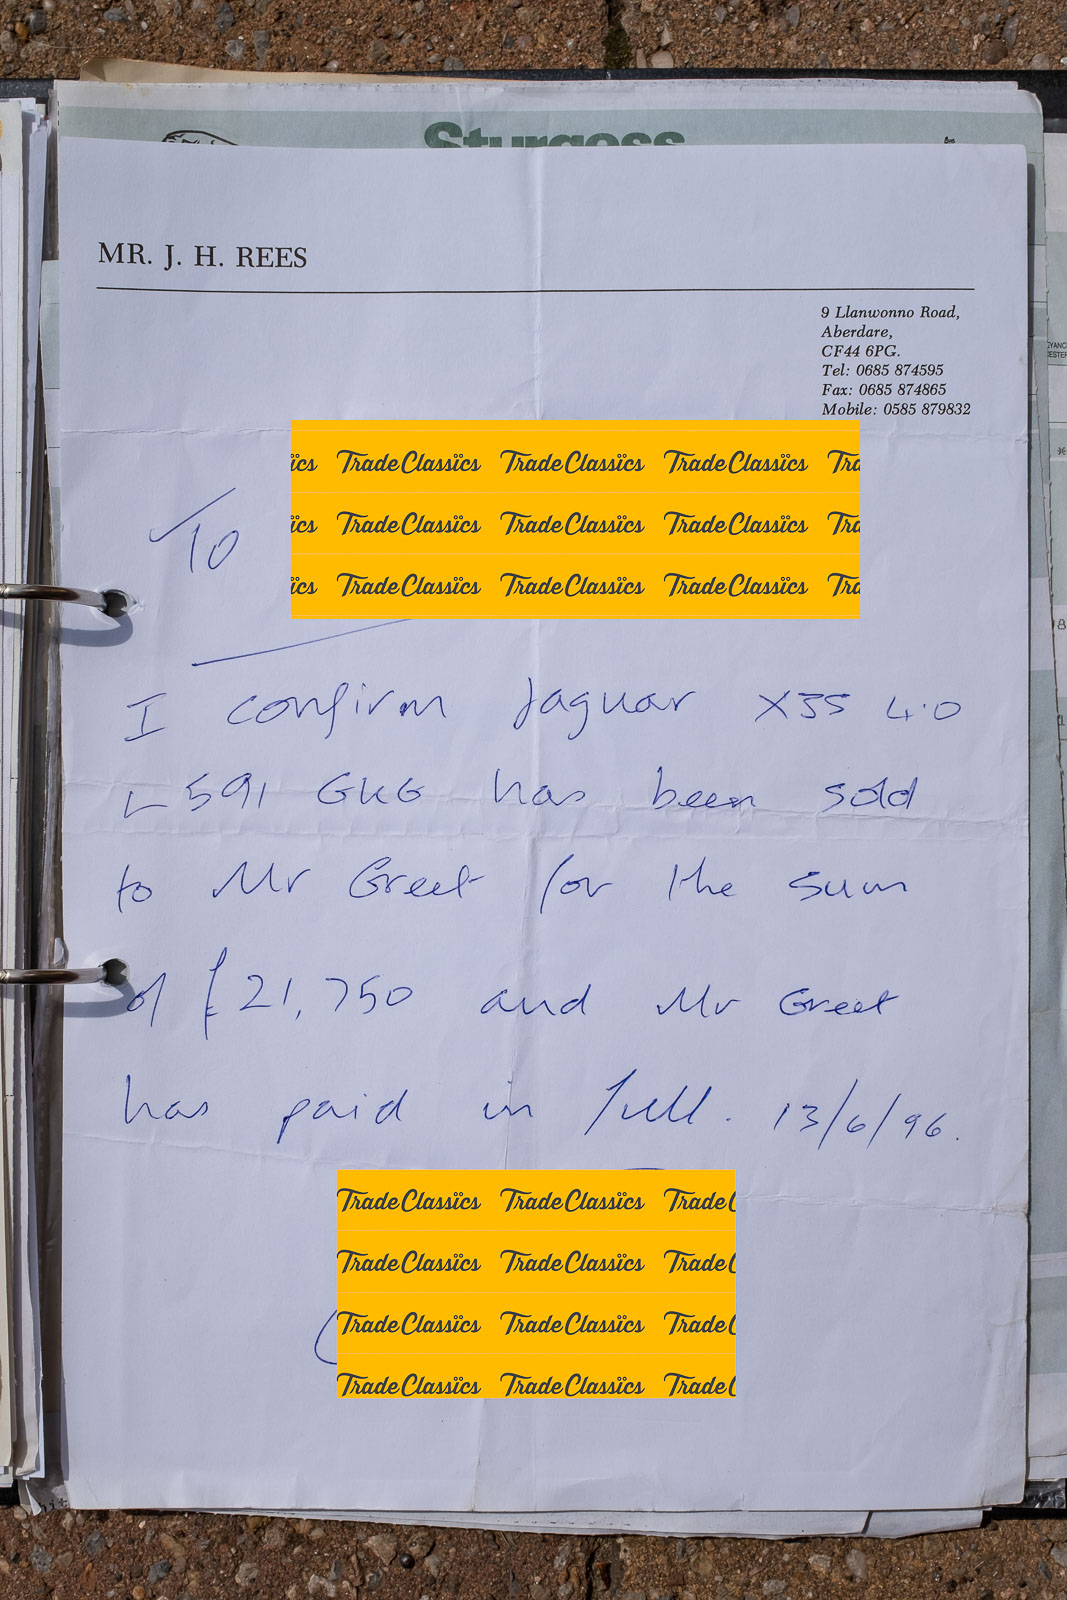 Sturgess
MR. J. H. REES
9 Llanwonno Road,
Aberdare,
CF44 6PG.
Tel: 0685 874595
Fax: 0685 874865
Mobile: 0585 879832
ics TradeClassics TradeClassics TradeClassics Tra
ics TradeClassics TradeClassics TradeClassics Tra
ics TradeClassics TradeClassics TradeClassics Tra
To
I confirm Jaguar XJS 4.0
L591 GKG has been sold
to Mr Greet for the sum
of £21,750 and Mr Greet
has paid in full. 13/6/96.
TradeClassics TradeClassics Trade
TradeClassics TradeClassics Trade
TradeClassics TradeClassics Trade
TradeClassics TradeClassics Trade